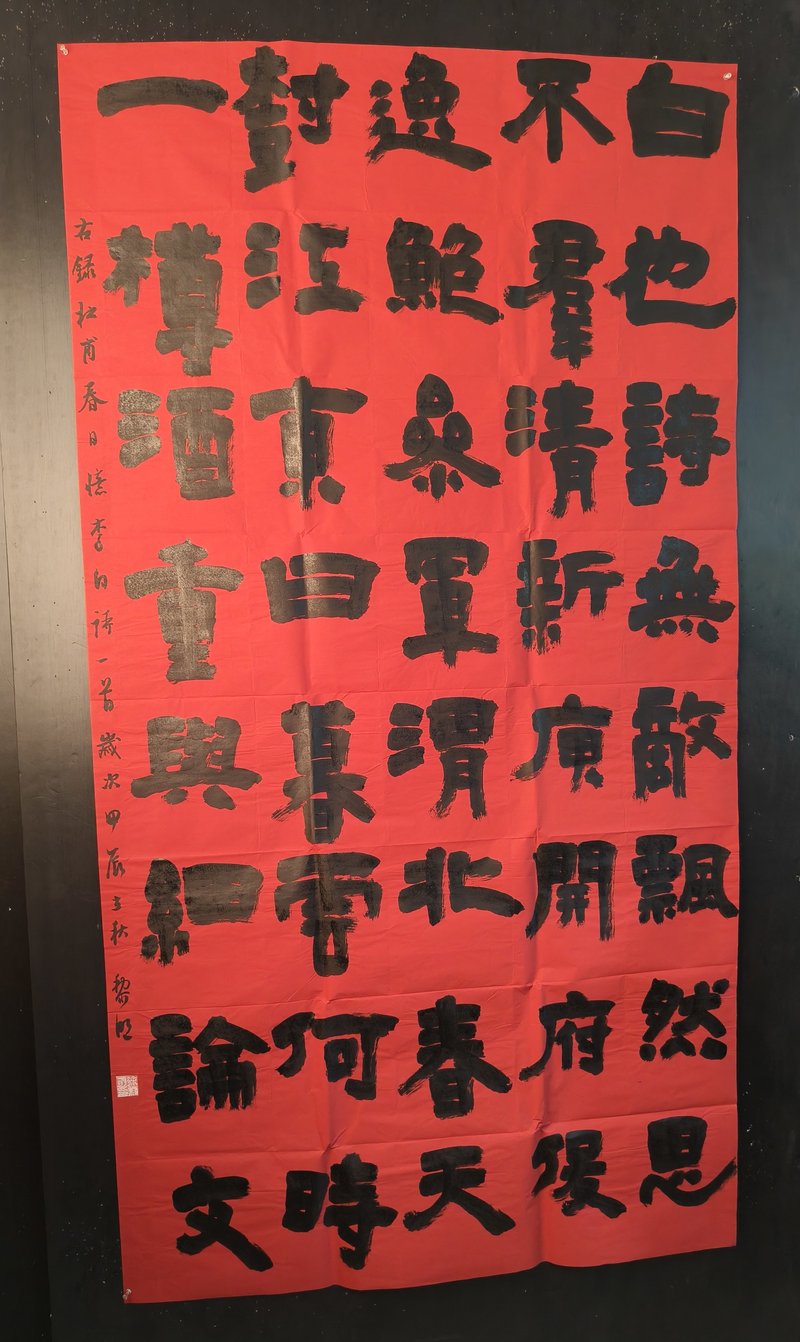 白也詩無敵飄然思
不羣清新庾開府俊
逸鮑參軍渭北春天
樹江東日暮雲何時
一樽酒重與細論文
右錄杜甫春日憶李白詩一首歲次甲辰立秋 黎明